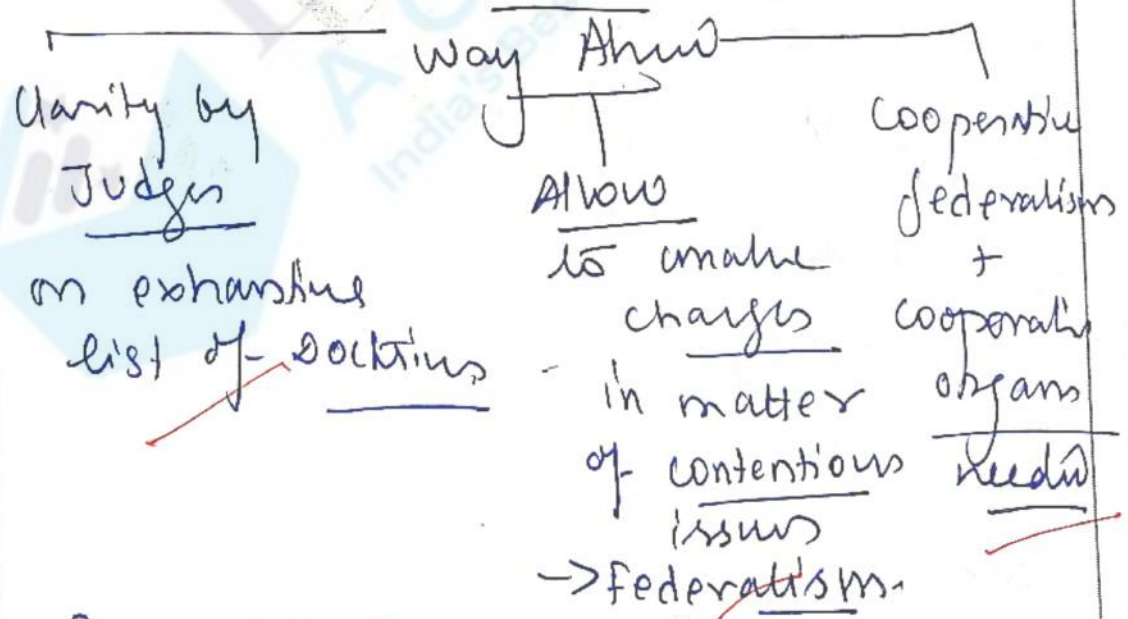 Way Ahead
Clarity by
Judges
on exhaustive
list of Doctrines
Allow
to make
changes
in matter
of contentious
issues
-> federalism.
cooperative
federalism
+
cooperative
organs
needed
India's Be